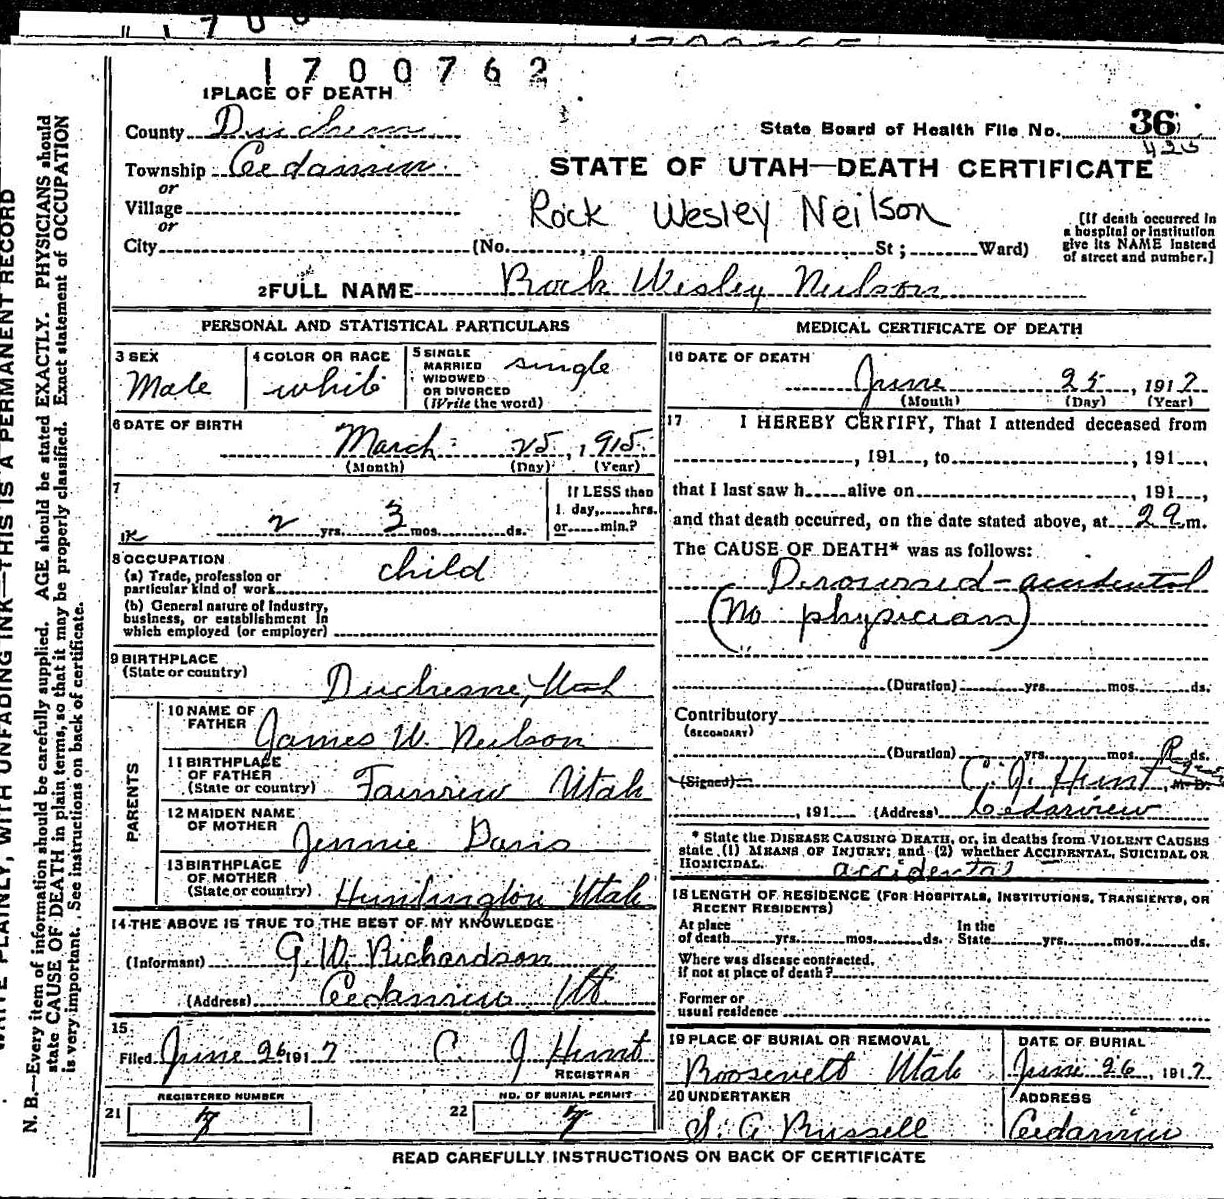 1700762
1 PLACE OF DEATH
County Duchesne
State Board of Health File No. 36
425
Township Cedarview
STATE OF UTAH—DEATH CERTIFICATE
or
Village
or
Rock Wesley Neilson
[If death occurred in
a hospital or institution
give its NAME instead
of street and number.]
City (No. , St ; Ward)
2 FULL NAME Rock Wesley Neilson
PERSONAL AND STATISTICAL PARTICULARS
3 SEX
Male
4 COLOR OR RACE
white
5 SINGLE
MARRIED
WIDOWED
OR DIVORCED
(Write the word)
single
6 DATE OF BIRTH
March 25, 1915
(Month) (Day) (Year)
7
2 yrs. 3 mos. ds.
If LESS than
1 day, hrs.
or min.?
8 OCCUPATION
(a) Trade, profession or
particular kind of work
child
(b) General nature of Industry,
business, or establishment in
which employed (or employer)
9 BIRTHPLACE
(State or country)
Duchesne, Utah
PARENTS
10 NAME OF
FATHER
James W. Neilson
11 BIRTHPLACE
OF FATHER
(State or country)
Fairview Utah
12 MAIDEN NAME
OF MOTHER
Jennie Davis
13 BIRTHPLACE
OF MOTHER
(State or country)
Huntington Utah
14 THE ABOVE IS TRUE TO THE BEST OF MY KNOWLEDGE
(Informant) G W Richardson
(Address) Cedarview Ut.
15
Filed June 26 1917 C. J Hunt
REGISTRAR
REGISTERED NUMBER
21 7
NO. OF BURIAL PERMIT
22 7
MEDICAL CERTIFICATE OF DEATH
16 DATE OF DEATH
June 25, 1917
(Month) (Day) (Year)
17 I HEREBY CERTIFY, That I attended deceased from
, 191 , to , 191 ,
that I last saw h alive on , 191 ,
and that death occurred, on the date stated above, at m.
The CAUSE OF DEATH* was as follows:
Drowned - accidental
(No physician)
(Duration) yrs. mos. ds.
Contributory
(SECONDARY)
(Duration) yrs. mos. ds.
(Signed) C. J. Hunt M. D.
, 191 (Address) Cedarview
* State the DISEASE CAUSING DEATH, or, in deaths from VIOLENT CAUSES
state (1) MEANS OF INJURY; and (2) whether ACCIDENTAL, SUICIDAL OR
HOMICIDAL.
accidental
18 LENGTH OF RESIDENCE (FOR HOSPITALS, INSTITUTIONS, TRANSIENTS, OR
RECENT RESIDENTS)
At place
of death yrs. mos. ds.
In the
State yrs. mos. ds.
Where was disease contracted,
if not at place of death?
Former or
usual residence
19 PLACE OF BURIAL OR REMOVAL
Roosevelt Utah
DATE OF BURIAL
June 26, 1917
20 UNDERTAKER
S. A Russell
ADDRESS
Cedarview
READ CAREFULLY INSTRUCTIONS ON BACK OF CERTIFICATE
WRITE PLAINLY, WITH UNFADING INK—THIS IS A PERMANENT RECORD
N. B.—Every item of information should be carefully supplied. AGE should be stated EXACTLY. PHYSICIANS should
state CAUSE OF DEATH in plain terms, so that it may be properly classified. Exact statement of OCCUPATION
is very important. See instructions on back of certificate.